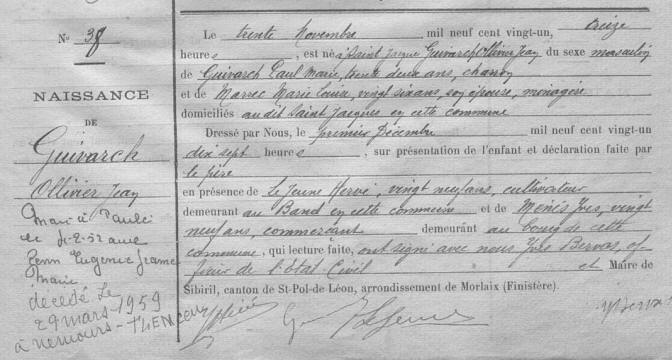 N° 38
NAISSANCE
DE
Guivarch
Ollivier Jean
Marié à
le 4-2-52 avec
Penn Eugénie Jeanne
Marie
décédé le
29 mars 1959
à Nemours - TLEMCEN
Le trente Novembre mil neuf cent vingt-un, treize
heures, est né à Saint Jacques Guivarch Ollivier Jean du sexe masculin
de Guivarch Paul Marie, trente deux ans, charron
et de Marrec Marie Louise, vingt six ans, son épouse, ménagère
domiciliés audit Saint Jacques en cette commune
Dressé par Nous, le premier Décembre mil neuf cent vingt-un
dix sept heures, sur présentation de l'enfant et déclaration faite par
le père
en présence de Le Jeune Hervé, vingt neuf ans, cultivateur
demeurant au Band en cette commune et de Menès Yves, vingt
neuf ans, commerçant demeurant au bourg de cette
commune, qui lecture faite, ont signé avec nous Yves Bervas, of
ficier de l'Etat Civil et Maire de
Sibiril, canton de St-Pol de Léon, arrondissement de Morlaix (Finistère).